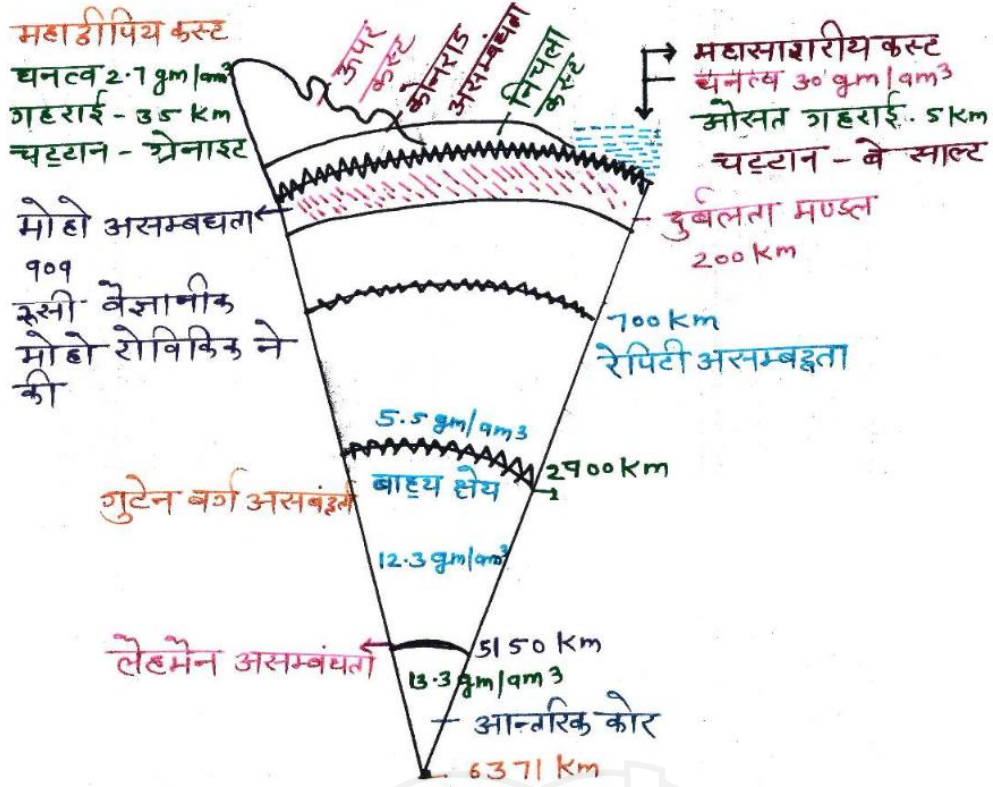 महाद्वीपिय कस्ट
घनत्व 2.7 gm/am³
गहराई - 35 km
चट्टान - ग्रेनाइट
ऊपर
कस्ट
कोनराड
असम्बंधता
निचला
कस्ट
महासागरीय कस्ट
घनत्व 30 gm/am³
औसत गहराई. 5 km
चट्टान - बे साल्ट
मोहो असम्बधता
909
रूसी वैज्ञानीक
मोहो रोविकिक ने
की
दुर्बलता मण्डल
200 km
700 km
रेपिटी असम्बद्वता
5.5 gm/am3
2900 km
बाह्य क्षेय
गुटेन बर्ग असबंद्वता
12.3 gm/am³
लेहमेन असम्बंधता
5150 km
13.3 gm/am3
आन्तरिक कोर
6371 km